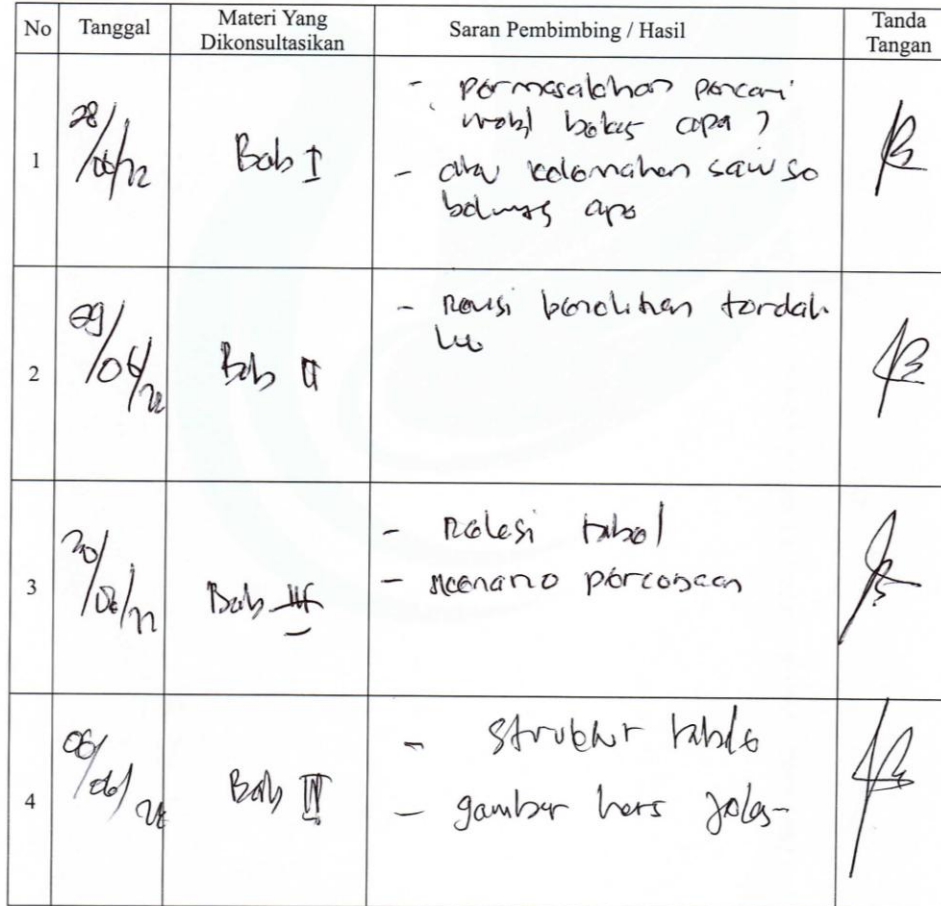 No
Tanggal
Materi Yang
Dikonsultasikan
Saran Pembimbing / Hasil
Tanda
Tangan
1
28/06/22
Bab I
- permasalahan pencari
mobil bekas apa ?
- kelemahan saw so
apa
2
Bab II
- Revisi terdah
lu
3
Bab III
- Relasi tabel
- scenario percobaan
4
Bab III
- struktur table
- gambar hars jelas